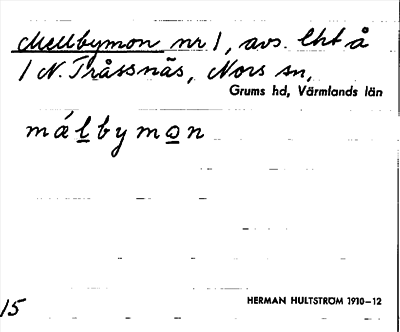 Mellbymon nr 1, avs. lht å
1 N. Tråssnäs, Nors sn,
Grums hd, Värmlands län
málbymon
HERMAN HULTSTRÖM 1910–12
15